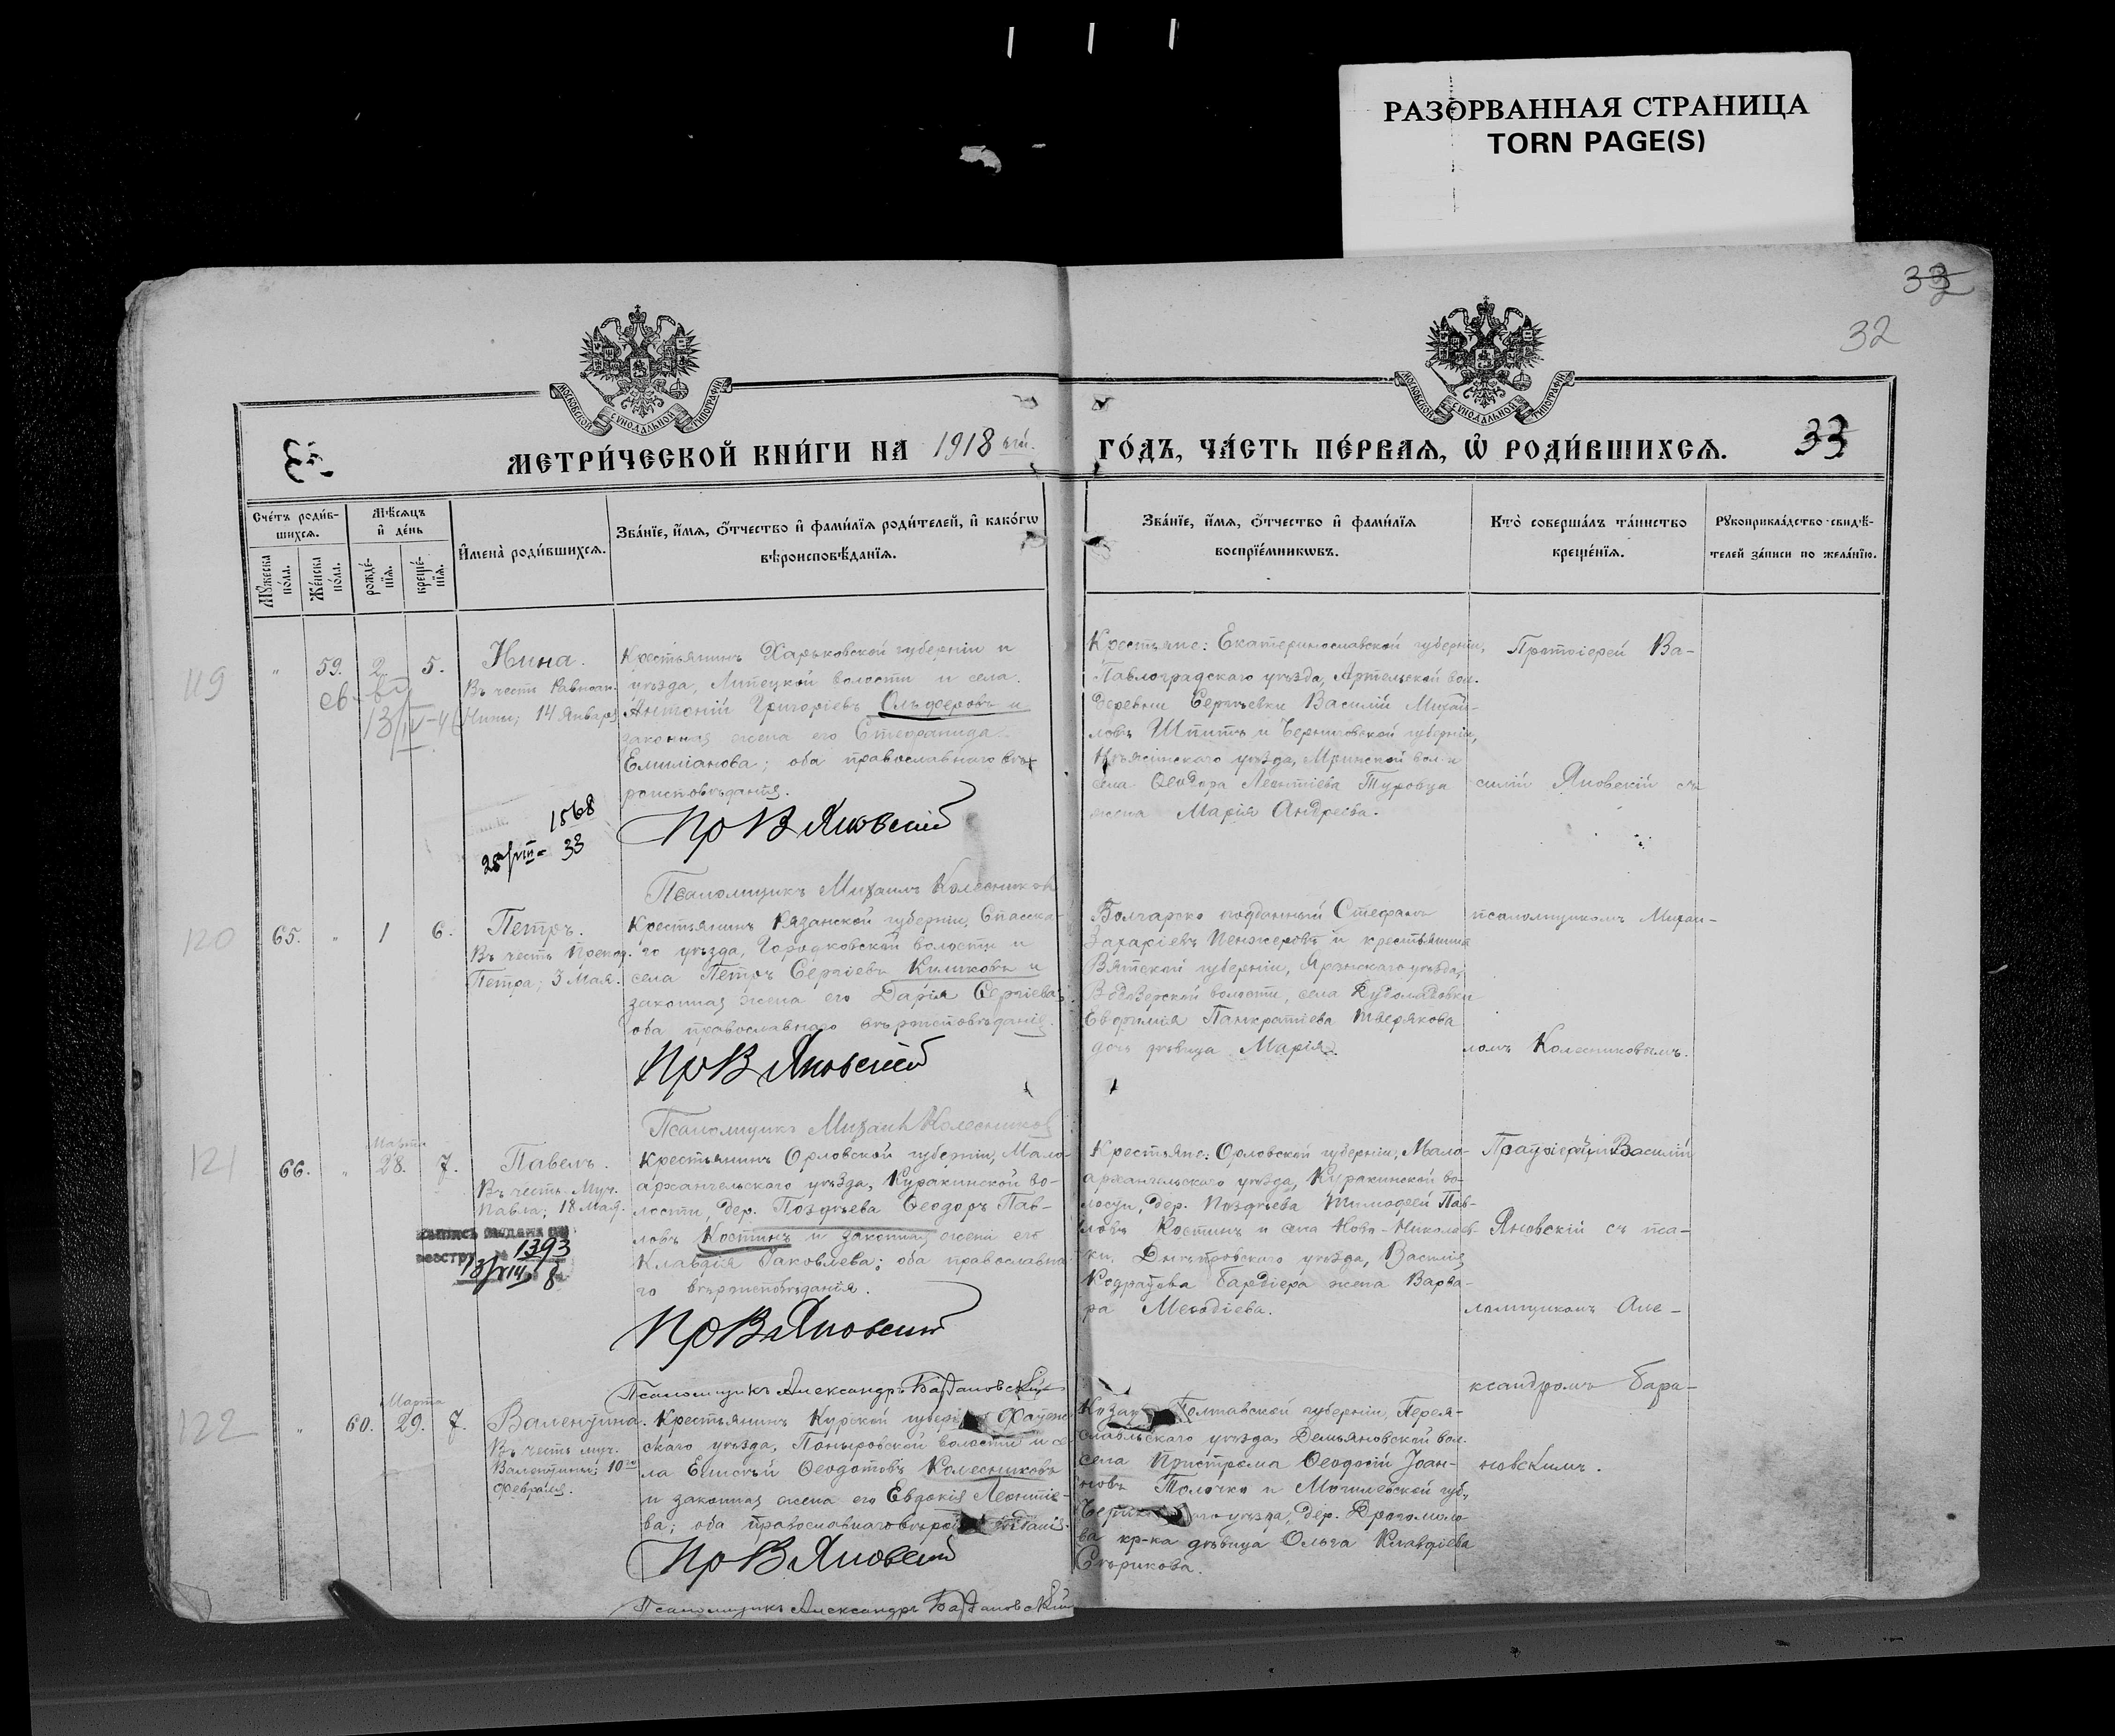 РАЗОРВАННАЯ СТРАНИЦА
TORN PAGE(S)
33
32
МОСКОВСКОЙ СУНОДАЛЬНОЙ ТИПОГРАФІИ
МОСКОВСКОЙ СУНОДАЛЬНОЙ ТИПОГРАФІИ
МЕТРИ́ЧЕСКОЙ КНИ́ГИ НА 1918 ый.
ГО́ДЪ, ЧА́СТЬ ПЕ́РВАѦ, Ѡ҆ РОДИ́ВШИХСѦ.
33
Сче́тъ роди́в-
шихсѧ.
Мꙋ́жеска по́ла.
Же́нска по́ла.
Мѣ́сѧцъ
и҆ де́нь
рожде́-
нїѧ.
креще́-
нїѧ.
И҆мена̀ роди́вшихсѧ.
Зва́нїе, и҆́мѧ, ѻ҆́тчество и҆ фами́лїѧ роди́телей, и҆ како́гѡ
вѣроисповѣ́данїѧ.
Зва́нїе, и҆́мѧ, ѻ҆́тчество и҆ фами́лїѧ
воспрїе́мникѡвъ.
Кто̀ соверша́лъ та́инство
креще́нїѧ.
Рꙋкоприкла́дство свидѣ́-
телей за́писи по жела́нїю.
119
"
59.
2
5.
Нина.
Въ честь Равноап.
Нины; 14 Января
13/IV-46
1568
28/VIII- 33
Крестьянинъ Харьковской губерніи и
уѣзда, Липецкой волости и села
Антоній Григоріевъ Ольферовъ и
законная жена его Стефанида
Емиліанова; оба православнаго вѣ-
роисповѣданія.
Пр В Яновскій
Псаломщикъ Михаилъ Колесников
Крестьяне: Екатеринославской губерніи,
Павлоградскаго уѣзда, Артельской вол.
деревни Сергѣевки Василій Михаи-
ловъ Шпитъ и Черниговской губерніи,
Нѣжинскаго уѣзда, Мринской вол. и
села Ѳеодора Леонтіева Туровца
жена Марія Андреева.
Протоіерей Ва-
силій Яновскій съ
120
65.
"
1
6.
Петръ.
Въ честь Препод.
Петра; 3 Мая.
Крестьянинъ Рязанской губерніи, Спасска-
го уѣзда, Городковской волости и
села Петръ Сергіевъ Куликовъ и
законная жена его Дарія Сергіева;
оба православнаго вѣроисповѣданія.
Пр В Яновскій
Псаломщикъ Михаилъ Колесников
Болгарско подданный Стефанъ
Захаріевъ Пенжеровъ и крестьянина
Вятской губерніи, Яранскаго уѣзда,
волости, села
Евфимія Панкратіева Тверякова
дочь дѣвица Марія.
псаломщикомъ Михаи-
ломъ Колесниковымъ.
121
66.
"
Марта
28.
7.
Павелъ.
Въ честь Муч.
Павла; 18 Мая.
выпись выдана по
реестру № 1393
Крестьянинъ Орловской губерніи, Мало-
архангельскаго уѣзда, Куракинской во-
лости, дер. Поздѣева Ѳеодоръ Пав-
ловъ Костинъ и законная жена его
Клавдія Іаковлева; оба православна-
го вѣроисповѣданія.
Пр В Яновскій
Псаломщикъ Александръ Барановскій
Крестьяне: Орловской губерніи, Мало-
архангельскаго уѣзда, Куракинской во-
лости, дер. Поздѣева Тимоѳей Пав-
ловъ Костинъ и села Ново-Николаев-
ки, Днѣпровскаго уѣзда, Василія
Кодратова Бардіера жена Варва-
ра Меѳодіева.
Протоіерей Василій
Яновскій съ пса-
ломщикомъ Але-
ксандромъ Бара-
новскимъ.
122
"
60.
Марта
29.
7.
Валентина.
Въ честь муч.
Валентины; 10го
Февраля.
Крестьянинъ Курской губерніи Фатеж-
скаго уѣзда, Поныровской волости и се-
ла Елисѣй Ѳеодотовъ Колесниковъ
и законная жена его Евдокія Леонтіе-
ва; оба православнаго вѣроисповѣданія.
Пр В Яновскій
Псаломщикъ Александръ Барановскій
Казакъ Полтавской губерніи, Перея-
славльскаго уѣзда, Демьяновской вол.
села Пристрома Ѳеодосій Іоан-
новъ Толочко и Могилевской губ.,
уѣзда, дер. Драгомило-
ва кр-ка дѣвица Ольга Клавдіева
Сѣрикова.